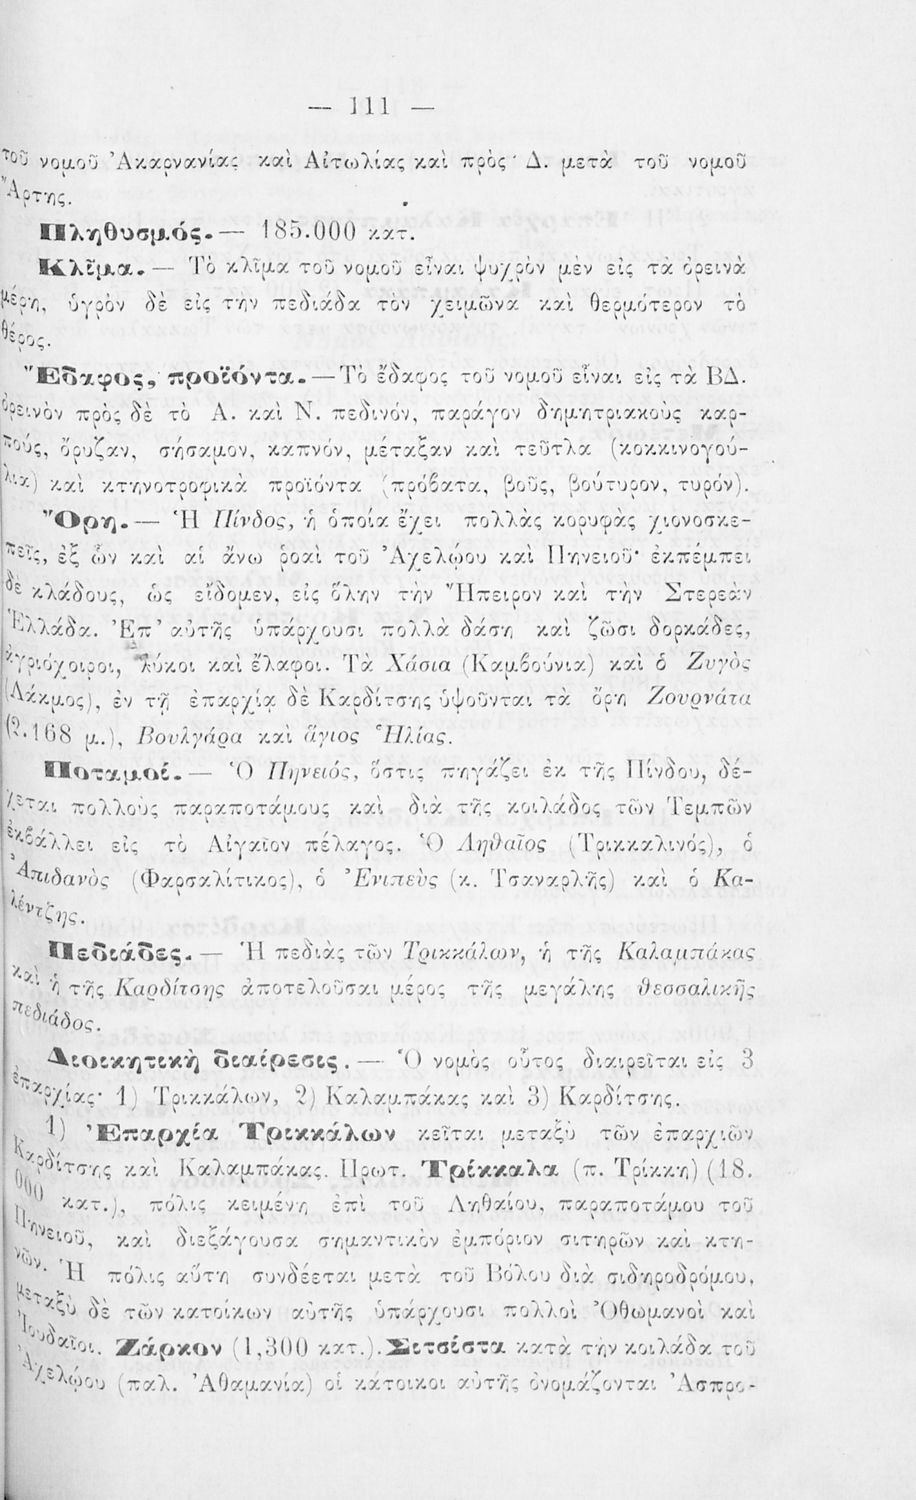 — 111 —
τοῦ νομοῦ Ἀκαρνανίας καὶ Αἰτωλίας καὶ πρὸς Δ. μετὰ τοῦ νομοῦ
Ἄρτης.
Πληθυσμός. — 185.000 κατ.
Κλῖμα. — Τὸ κλῖμα τοῦ νομοῦ εἶναι ψυχρὸν μὲν εἰς τὰ ὀρεινὰ
μέρη, ὑγρὸν δὲ εἰς την πεδιάδα τὸν χειμῶνα καὶ θερμότερον τὸ
θέρος.
Ἔδαφος, προϊόντα. — Τὸ ἔδαφος τοῦ νομοῦ εἶναι εἰς τὰ ΒΔ.
ὀρεινὸν πρὸς δὲ τὸ Α. καὶ Ν. πεδινόν, παράγον δημητριακοὺς καρ-
ποὺς, ὄρυζαν, σήσαμον, καπνόν, μέταξαν καὶ τεῦτλα (κοκκινογού-
λια) καὶ κτηνοτροφικὰ προϊόντα (πρόβατα, βοῦς, βούτυρον, τυρόν).
Ὄρη. — Ἡ Πίνδος, ἡ ὁποία ἔχει πολλὰς κορυφὰς χιονοσκε-
πεῖς, ἐξ ὧν καὶ αἱ ἄνω ῥοαὶ τοῦ Ἀχελῴου καὶ Πηνειοῦ· ἐκπέμπει
δὲ κλάδους, ὡς εἴδομεν, εἰς ὅλην τὴν Ἤπειρον καὶ τὴν Στερεὰν
Ἑλλάδα. Ἐπ' αὐτῆς ὑπάρχουσι πολλὰ δάση καὶ ζῶσι δορκάδες,
ἀγριόχοιροι, λύκοι καὶ ἔλαφοι. Τὰ Χάσια (Καμβούνια) καὶ ὁ Ζυγὸς
(Λάκμος), ἐν τῇ ἐπαρχίᾳ δὲ Καρδίτσης ὑψοῦνται τὰ ὄρη Ζουρνάτα
(2.168 μ.), Βουλγάρα καὶ ἅγιος Ἠλίας.
Ποταμοί. — Ὁ Πηνειός, ὅστις πηγάζει ἐκ τῆς Πίνδου, δέ-
χεται πολλοὺς παραποτάμους καὶ διὰ τῆς κοιλάδος τῶν Τεμπῶν
ἐκβάλλει εἰς τὸ Αἰγαῖον πέλαγος. Ὁ Ληθαῖος (Τρικκαλινός), ὁ
Ἀπιδανὸς (Φαρσαλίτικος), ὁ Ἐνιπεὺς (κ. Τσαναρλῆς) καὶ ὁ Κα-
λέντζης.
Πεδιάδες. — Ἡ πεδιὰς τῶν Τρικκάλων, ἡ τῆς Καλαμπάκας
καὶ ἡ τῆς Καρδίτσης ἀποτελοῦσαι μέρος τῆς μεγάλης θεσσαλικῆς
πεδιάδος.
Διοικητικὴ διαίρεσις. — Ὁ νομὸς οὗτος διαιρεῖται εἰς 3
ἐπαρχίας· 1) Τρικκάλων, 2) Καλαμπάκας καὶ 3) Καρδίτσης.
1) Ἐπαρχία Τρικκάλων κεῖται μεταξὺ τῶν ἐπαρχιῶν
Καρδίτσης καὶ Καλαμπάκας. Πρωτ. Τρίκκαλα (π. Τρίκκη) (18.
000 κατ.), πόλις κειμένη ἐπὶ τοῦ Ληθαίου, παραποτάμου τοῦ
Πηνειοῦ, καὶ διεξάγουσα σημαντικὸν ἐμπόριον σιτηρῶν καὶ κτη-
νῶν. Ἡ πόλις αὕτη συνδέεται μετὰ τοῦ Βόλου διὰ σιδηροδρόμου,
μεταξὺ δὲ τῶν κατοίκων αὐτῆς ὑπάρχουσι πολλοὶ Ὀθωμανοὶ καὶ
Ἰουδαῖοι. Ζάρκον (1,300 κατ.). Σιτσίστα κατὰ τὴν κοιλάδα τοῦ
Ἀχελῴου (παλ. Ἀθαμανία) οἱ κάτοικοι αὐτῆς ὀνομάζονται Ἀσπρο-